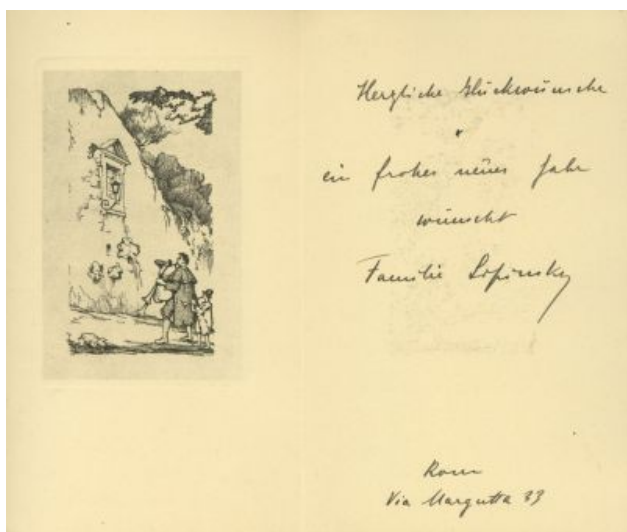 Herzliche Glückwünsche
+
ein frohes neues Jahr
wünscht
Familie Lipinsky
Rom
Via Margutta 33